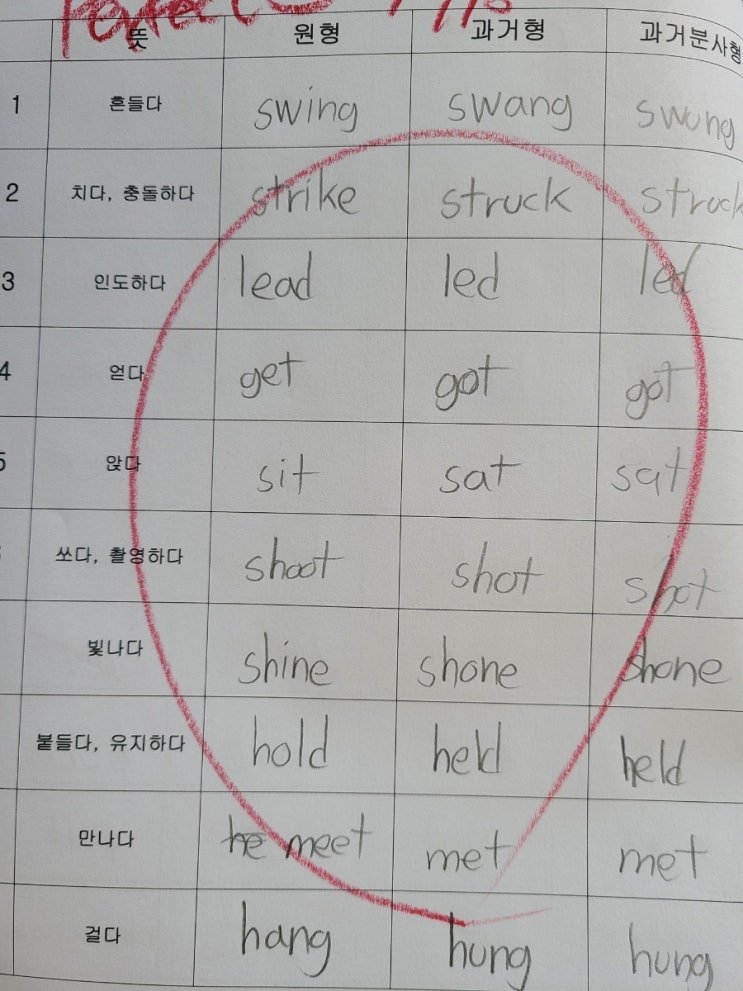 Perfect
뜻 원형 과거형 과거분사형
1 흔들다 swing swang swung
2 치다, 충돌하다 strike struck struck
3 인도하다 lead led led
4 얻다 get got got
5 앉다 sit sat sat
쏘다, 촬영하다 shoot shot shot
빛나다 shine shone shone
붙들다, 유지하다 hold held held
만나다 he meet met met
걸다 hang hung hung